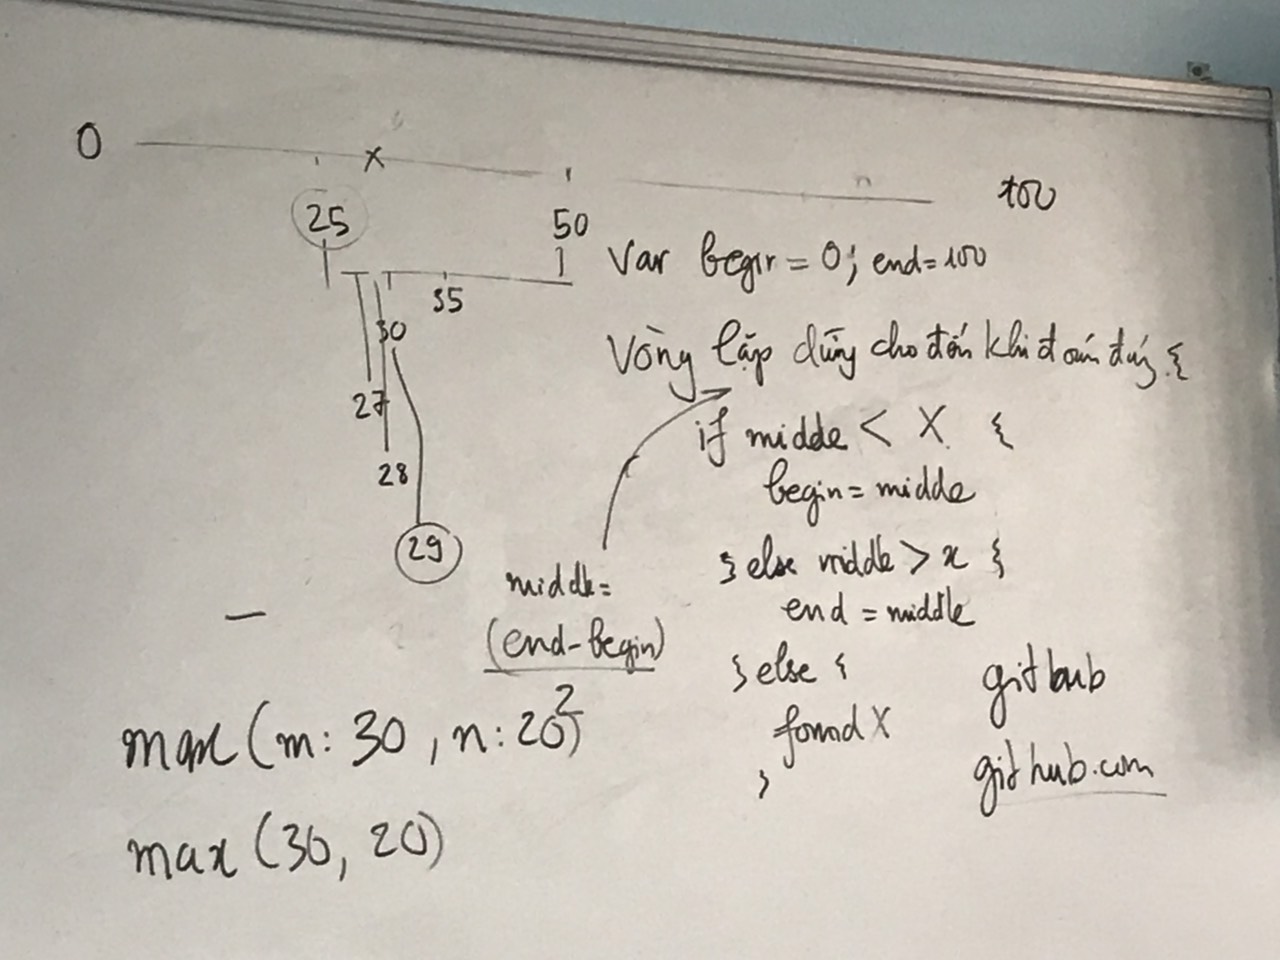 0 x 100
25 50
35
30
27
28
29
Var begin = 0; end = 100
Vòng lặp dừng cho đến khi đoán đúng {
if midde < X {
begin = midde
} else middle > x {
end = middle
} else {
found X
}
middle =
(end - begin)
2
max (m: 30, n: 20)
max (30, 20)
github
github.com